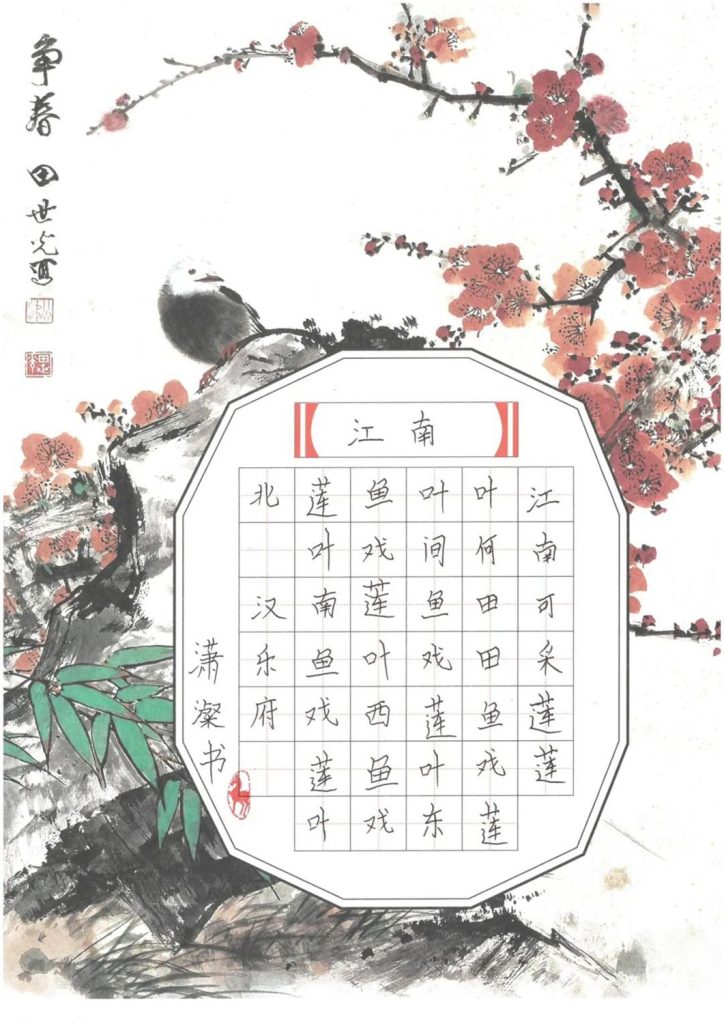 争春 田世光写
江南
江南可采莲莲
叶何田田鱼戏莲
叶间鱼戏莲叶东
鱼戏莲叶西鱼戏
莲叶南鱼戏莲叶
北 汉乐府
潇澯书